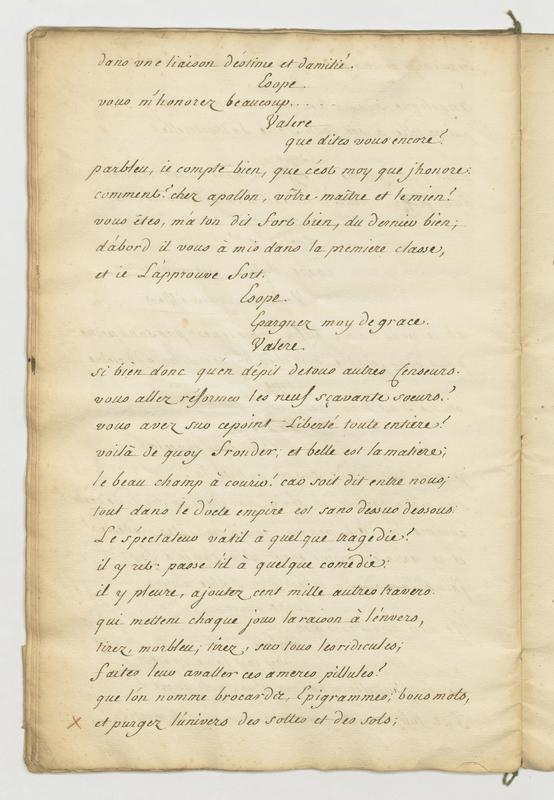 dans vne liaison d'éstime et damitié.
Esope.
vous m'honorez beaucoup.....
Valere
que dites vous encore?
parbleu, ie compte bien, que c'est moy que jhonore:
comment? chez apollon, vôtre maître et le mien?
vous étes, m'a ton dit fort bien, du dernier bien;
d'abord il vous à mis dans la premiere classe,
et ie L'approuve fort.
Esope.
Epargnez moy de grace.
Valere.
si bien donc qu'en dépit detous autres Censeurs.
vous allez réformer les neuf sçavante soeurs?
vous avez sur cepoint Liberté toute entiere?
voilà de quoy fronder; et belle est la matiere;
le beau champ à courir! car soit dit entre nous;
tout dans le docte empire est sans dessus dessous:
Le spectateur va til à quelque tragédie?
il y rit: passe til à quelque comédie:
il y pleure, ajoutez cent mille autres travers.
qui mettent chaque jour la raison à l'énvers,
tirez, morbleu; tirez, sur tous les ridicules;
faites leur avaller ces ameres pillules?
que l'on nomme brocardie, Epigrammes, bons mots,
et purgez l'univers des sottes et des sots;